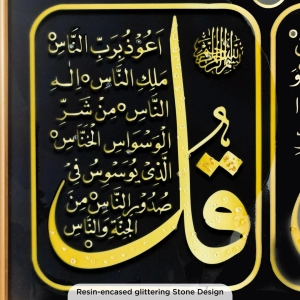 بسم الله الرحمن الرحيم
قل
اعوذ برب الناس
ملك الناس اله
الناس من شر
الوسواس الخناس
الذي يوسوس في
صدور الناس من
الجنة والناس
Resin-encased glittering Stone Design